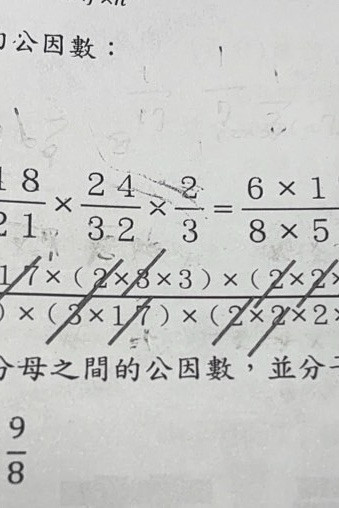 公因數：
18/21 × 24/32 × 2/3 = 6 × 1 / 8 × 5
17 × ( 2 × 3 × 3 ) × ( 2 × 2 ×
) × ( 3 × 17 ) × ( 2 × 2 × 2 ×
分母之間的公因數，並分子
9/8